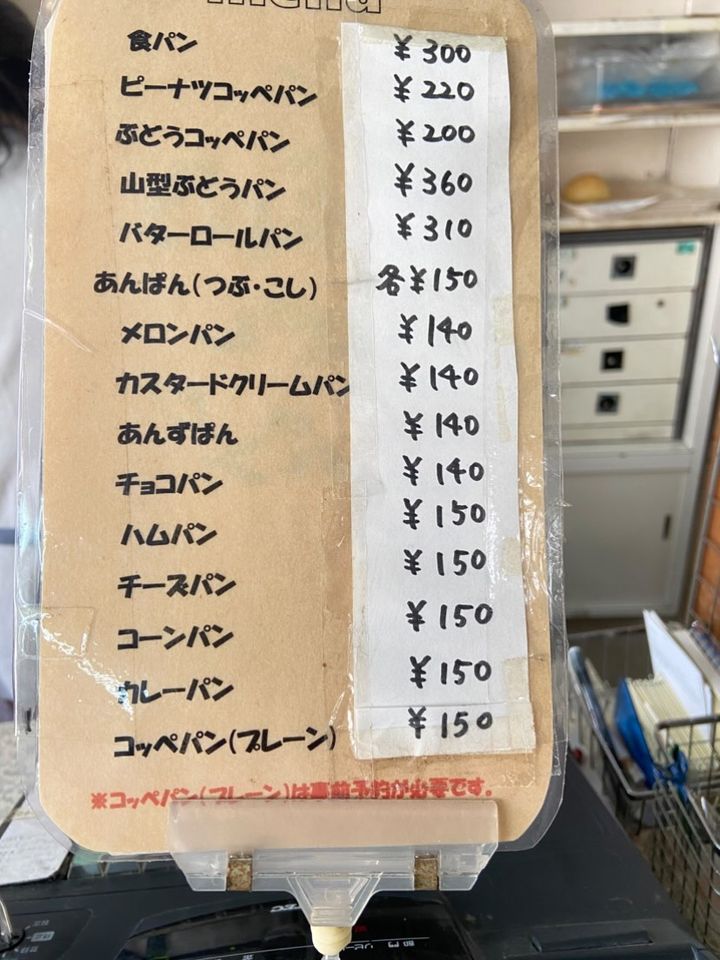 menu
食パン ¥300
ピーナツコッペパン ¥220
ぶどうコッペパン ¥200
山型ぶどうパン ¥360
バターロールパン ¥310
あんぱん(つぶ・こし) 各¥150
メロンパン ¥140
カスタードクリームパン ¥140
あんずぱん ¥140
チョコパン ¥140
ハムパン ¥150
チーズパン ¥150
コーンパン ¥150
カレーパン ¥150
コッペパン(プレーン) ¥150
※コッペパン(プレーン)は事前予約が必要です。